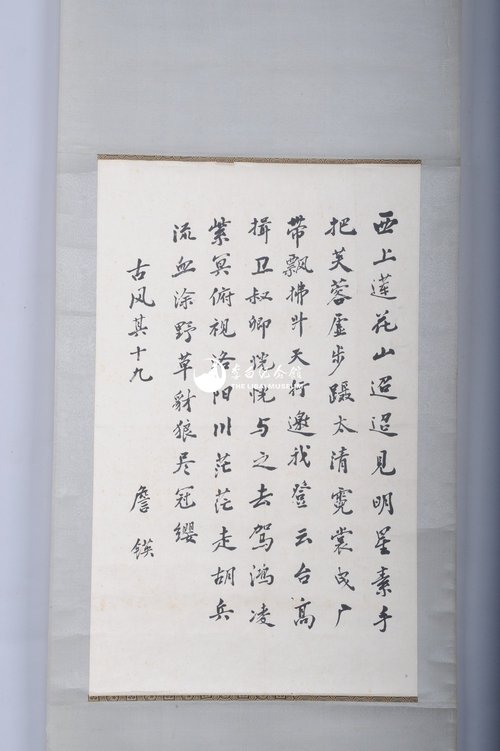 西上莲花山迢迢见明星素手
把芙蓉虚步蹑太清霓裳曳广
带飘拂升天行邀我登云台高
揖卫叔卿恍恍与之去驾鸿凌
紫冥俯视洛阳川茫茫走胡兵
流血涂野草豺狼尽冠缨
古风其十九 詹锳
李白纪念馆
THE LIBAI MUSEUM